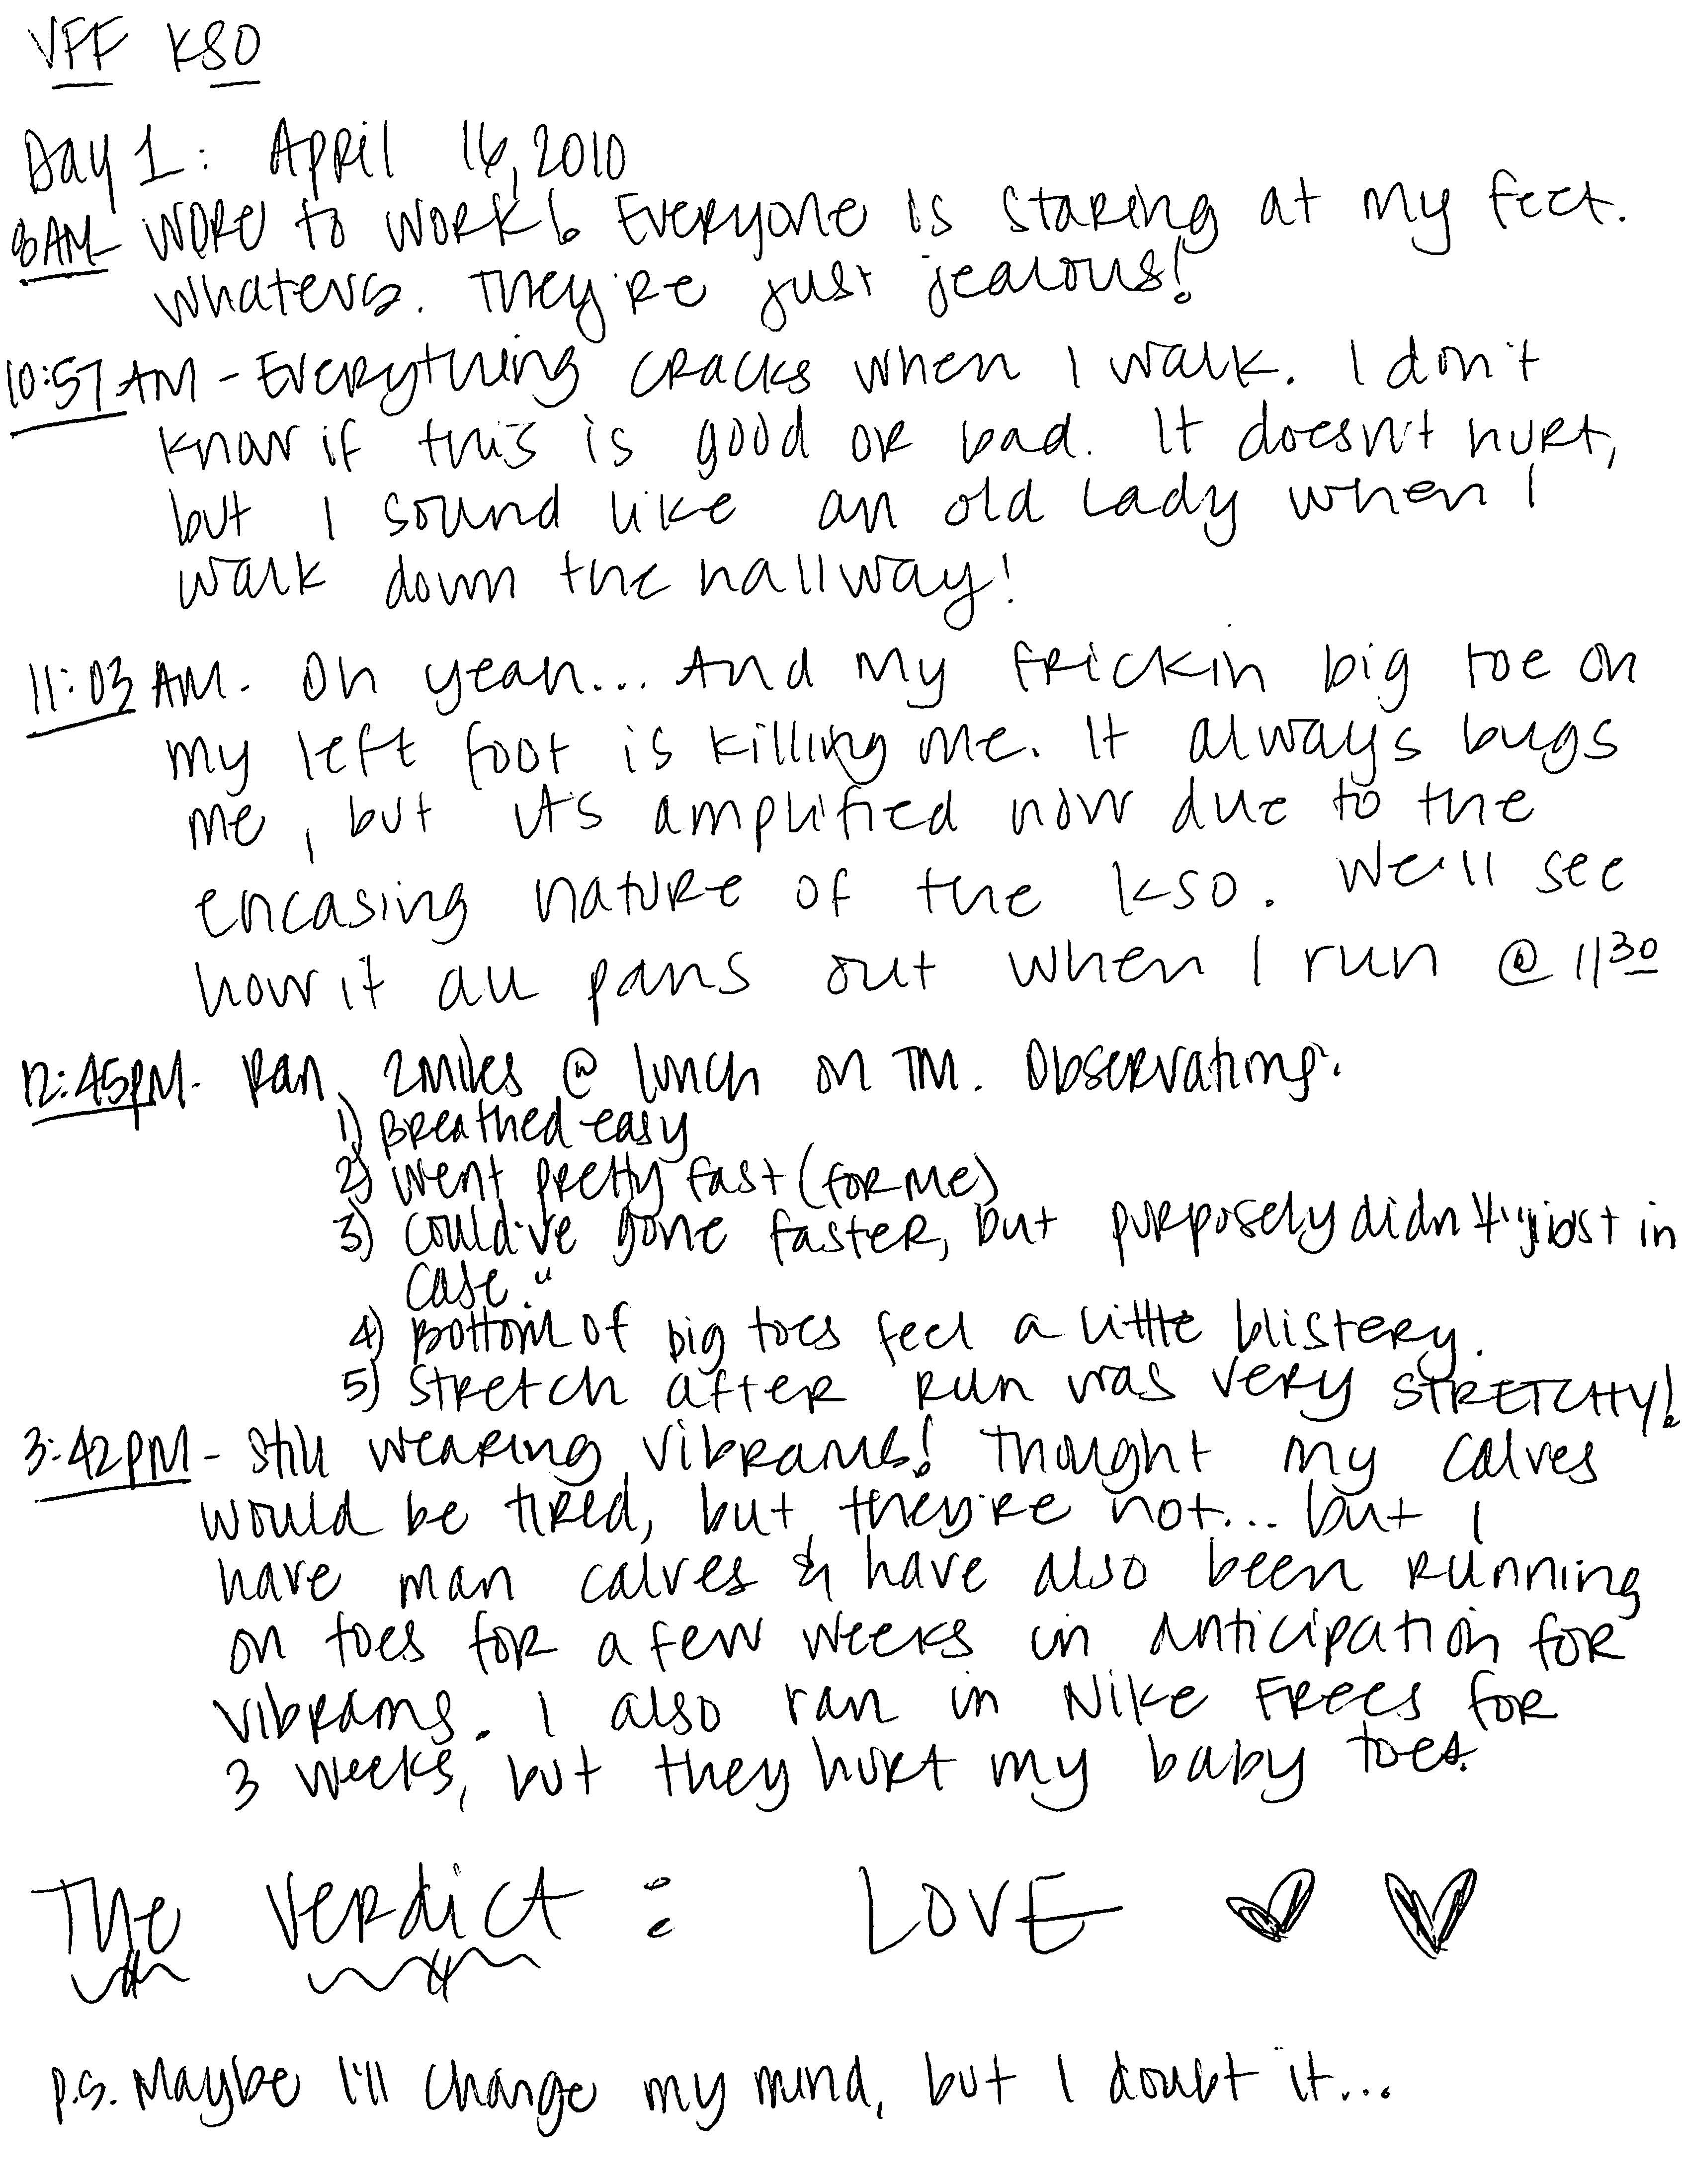 VFF KSO
Day 1: April 16, 2010
8AM- Wore to work! Everyone is staring at my feet.
Whatevs. They're just jealous!
10:57 AM - Everything cracks when I walk. I don't
know if this is good or bad. It doesn't hurt,
but I sound like an old lady when I
walk down the hallway!
11:03 AM. Oh yeah... And my frickin big toe on
my left foot is killing me. It always bugs
me, but it's amplified now due to the
encasing nature of the KSO. We'll see
how it all pans out when I run @ 11:30
12:45PM- Ran 2 miles @ lunch on TM. Observations:
1) Breathed easy
2) Went pretty fast (for me)
3) Could've gone faster, but purposely didn't "just in
case."
4) Bottom of big toes feel a little blistery.
5) Stretch after run was very STRETCHY!
3:42PM - Still wearing Vibrams! Thought my calves
would be tired, but they're not... but I
have man calves & have also been running
on toes for a few weeks in anticipation for
Vibrams. I also ran in Nike Frees for
3 weeks, but they hurt my baby toes.
The Verdict: LOVE ♥ ♥
P.S. Maybe I'll change my mind, but I doubt it...